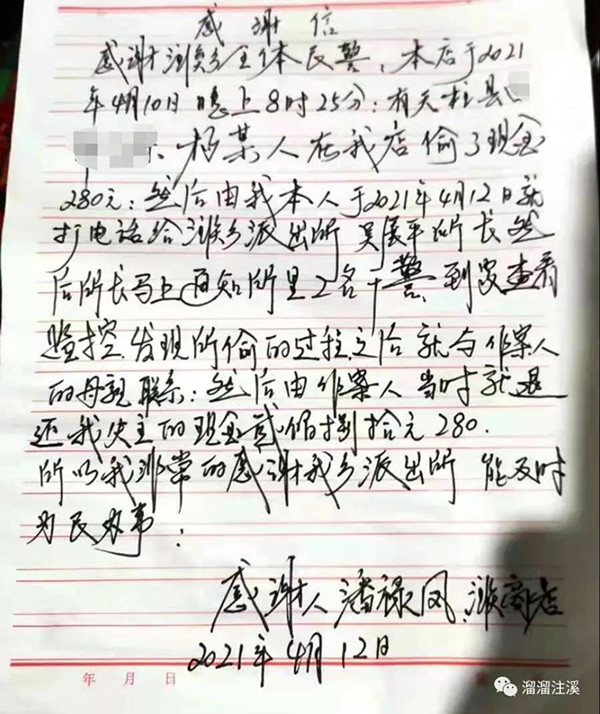 感谢信
感谢潍乡全体民警，本店于2021
年4月10日晚上8时25分：有天柱县
杨某人在我店偷了现金
280元：然后由我本人于2021年4月12日就
打电话给潍乡派出所吴展平所长然
后所长马上通知所里2名干警到家查看
监控发现所偷的过程之后就与作案人
的母亲联系：然后由作案人当时就退
还我失主的现金贰佰捌拾元280.
所以我非常的感谢我乡派出所能及时
为民办事：
感谢人潘禄凤 商店
2021年4月12日
年 月 日 第 页
溜溜注溪